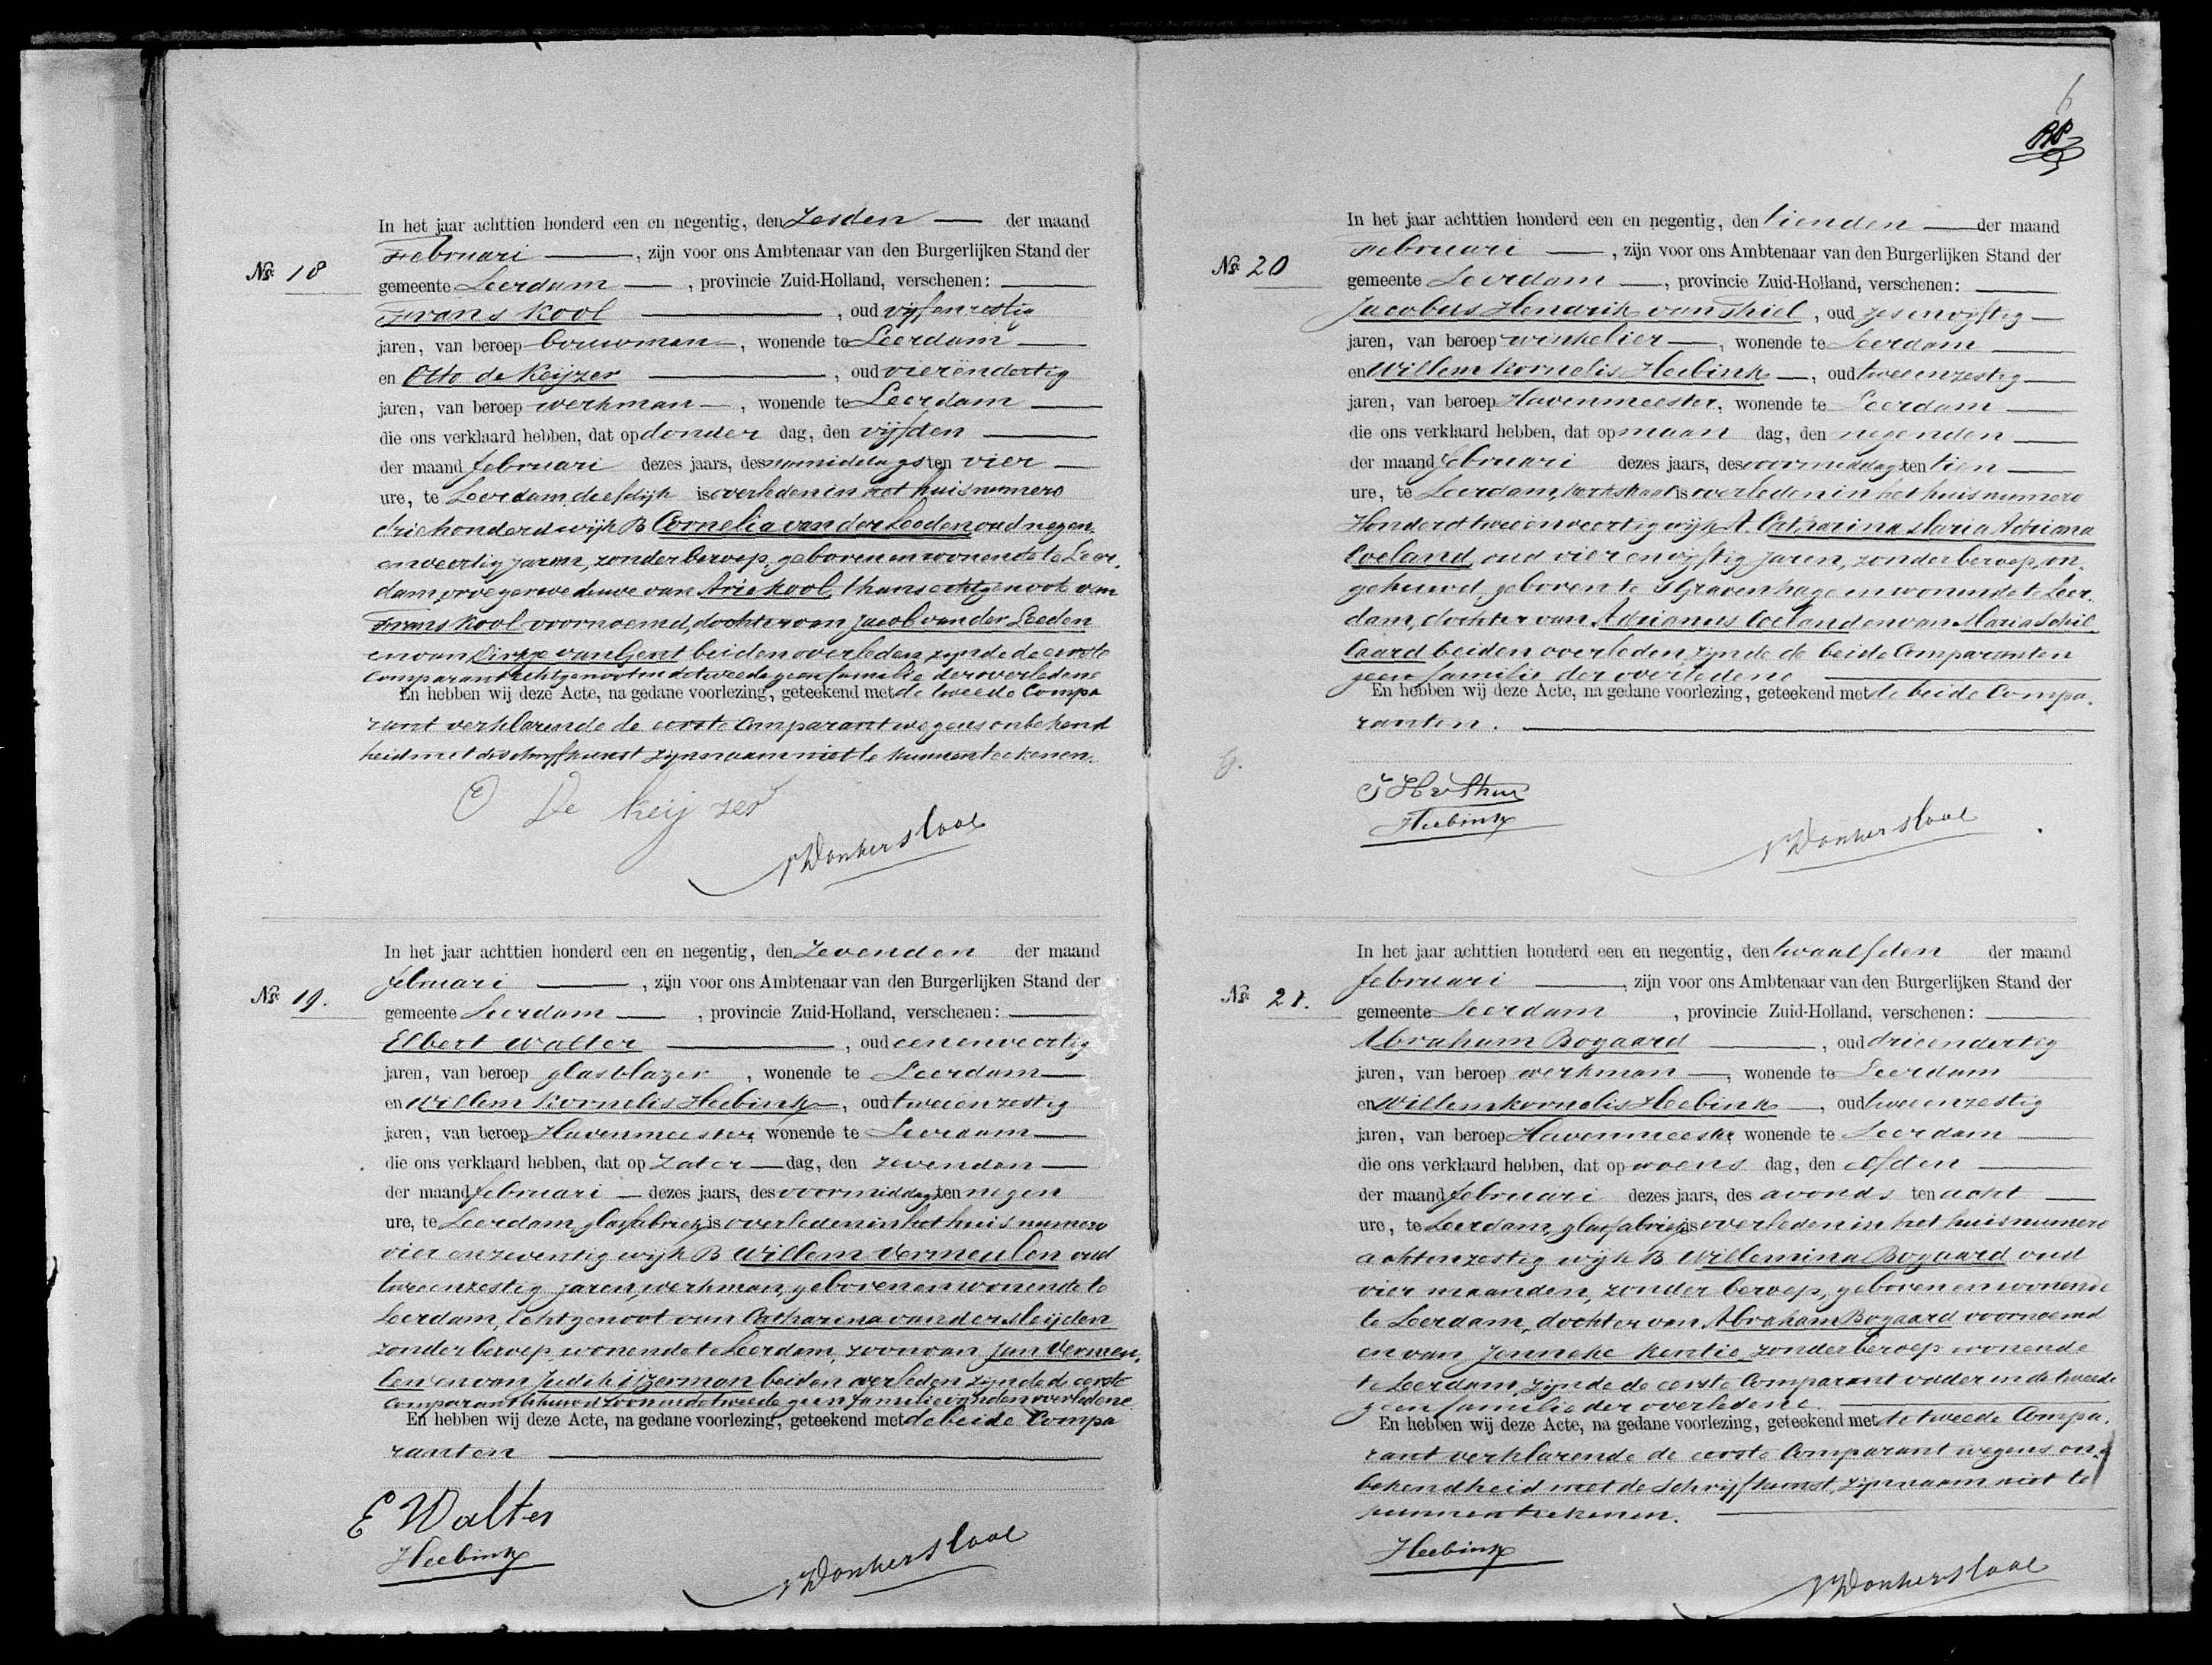 No. 18
In het jaar achttien honderd een en negentig, den Zesden der maand
Februari, zijn voor ons Ambtenaar van den Burgerlijken Stand der
gemeente Leerdam, provincie Zuid-Holland, verschenen:
Frans Kool, oud vijfenzestig
jaren, van beroep bouwman, wonende te Leerdam
en Otto de Keijzer, oud vierendertig
jaren, van beroep werkman, wonende te Leerdam
die ons verklaard hebben, dat op donder dag, den vijfden
der maand februari dezes jaars, des namiddags ten vier
ure, te Leerdam, deefdijk is overleden in het huis numero
driehonderd wijk B Cornelia van der Leeden oud negen
enveertig jaren, zonder beroep, geboren en wonende te Leer.
dam, vroeger weduwe van Arie Kool, thans echtgenoot van
Frans Kool voornoemd, dochter van Jacob van der Leeden
en van Dirkje van Gent beiden overleden zijnde de eerste
Comparant echtgenoot en de tweede geen familie der overledene
En hebben wij deze Acte, na gedane voorlezing, geteekend met de tweede Compa
rant verklarende de eerste Comparant wegens onbekend
heid met de schrijfkunst zijn naam niet te kunnen teekenen.
O De Keijzer
Donkersloot
No. 19.
In het jaar achttien honderd een en negentig, den Zevenden der maand
februari, zijn voor ons Ambtenaar van den Burgerlijken Stand der
gemeente Leerdam, provincie Zuid-Holland, verschenen:
Elbert Walter, oud eenenveertig
jaren, van beroep glasblazer, wonende te Leerdam
en Willem Kornelis Heebink, oud tweeenzestig
jaren, van beroep Havenmeester, wonende te Leerdam
die ons verklaard hebben, dat op Zater dag, den zevenden
der maand februari dezes jaars, des voormiddags ten negen
ure, te Leerdam, glasfabriek is overleden in het huis numero
vier en zeventig wijk B Willem Vermeulen oud
tweeenzestig jaren, werkman, geboren en wonende te
Leerdam, Echtgenoot van Catharina van der Meijden
zonder beroep wonende te Leerdam, zoon van Jan Vermeu.
len en van Judik IJzerman beiden overleden zijnde de eerste
Comparant behuwd zoon en de tweede geen familie van den overledene
En hebben wij deze Acte, na gedane voorlezing, geteekend met de beide Compa
ranten
E Walter
Heebink
Donkersloot
No. 20
In het jaar achttien honderd een en negentig, den tienden der maand
Februari, zijn voor ons Ambtenaar van den Burgerlijken Stand der
gemeente Leerdam, provincie Zuid-Holland, verschenen:
Jacobus Hendrik van Thiel, oud zesenvijftig
jaren, van beroep winkelier, wonende te Leerdam
en Willem Kornelis Heebink, oud tweeenzestig
jaren, van beroep Havenmeester, wonende te Leerdam
die ons verklaard hebben, dat op maan dag, den negenden
der maand februari dezes jaars, des voormiddags ten tien
ure, te Leerdam, kerkstraat is overleden in het huis numero
Honderd tweeënveertig wijk A. Catharina Maria Adriana
Coeland, oud vier en vijftig jaren, zonder beroep, on
gehuwd, geboren te 'SGravenhage en wonende te Leer.
dam, dochter van Adrianus Coeland en van Maria Schil
laard beiden overleden zijnde de beide Comparanten
geen familie der overledene
En hebben wij deze Acte, na gedane voorlezing, geteekend met de beide Compa.
ranten.
Heebink
Donkersloot
No. 21.
In het jaar achttien honderd een en negentig, den twaalfden der maand
februari, zijn voor ons Ambtenaar van den Burgerlijken Stand der
gemeente Leerdam, provincie Zuid-Holland, verschenen:
Abraham Bogaard, oud drieendertig
jaren, van beroep werkman, wonende te Leerdam
en Willem Kornelis Heebink, oud tweeenzestig
jaren, van beroep Havenmeester, wonende te Leerdam
die ons verklaard hebben, dat op woens dag, den elfden
der maand februari dezes jaars, des avonds ten acht
ure, te Leerdam, glasfabriek is overleden in het huis numero
achtenzestig wijk B Willemina Bogaard oud
vier maanden, zonder beroep, geboren en wonende
te Leerdam, dochter van Abraham Bogaard voornoemd
en van Jenneke Kentie zonder beroep wonende
te Leerdam, zijnde de eerste Comparant vader en de tweede
geen familie der overledene.
En hebben wij deze Acte, na gedane voorlezing, geteekend met de tweede Compa.
rant verklarende de eerste Comparant wegens on
bekendheid met de schrijfkunst, zijn naam niet te
kunnen teekenen.
Heebink
Donkersloot